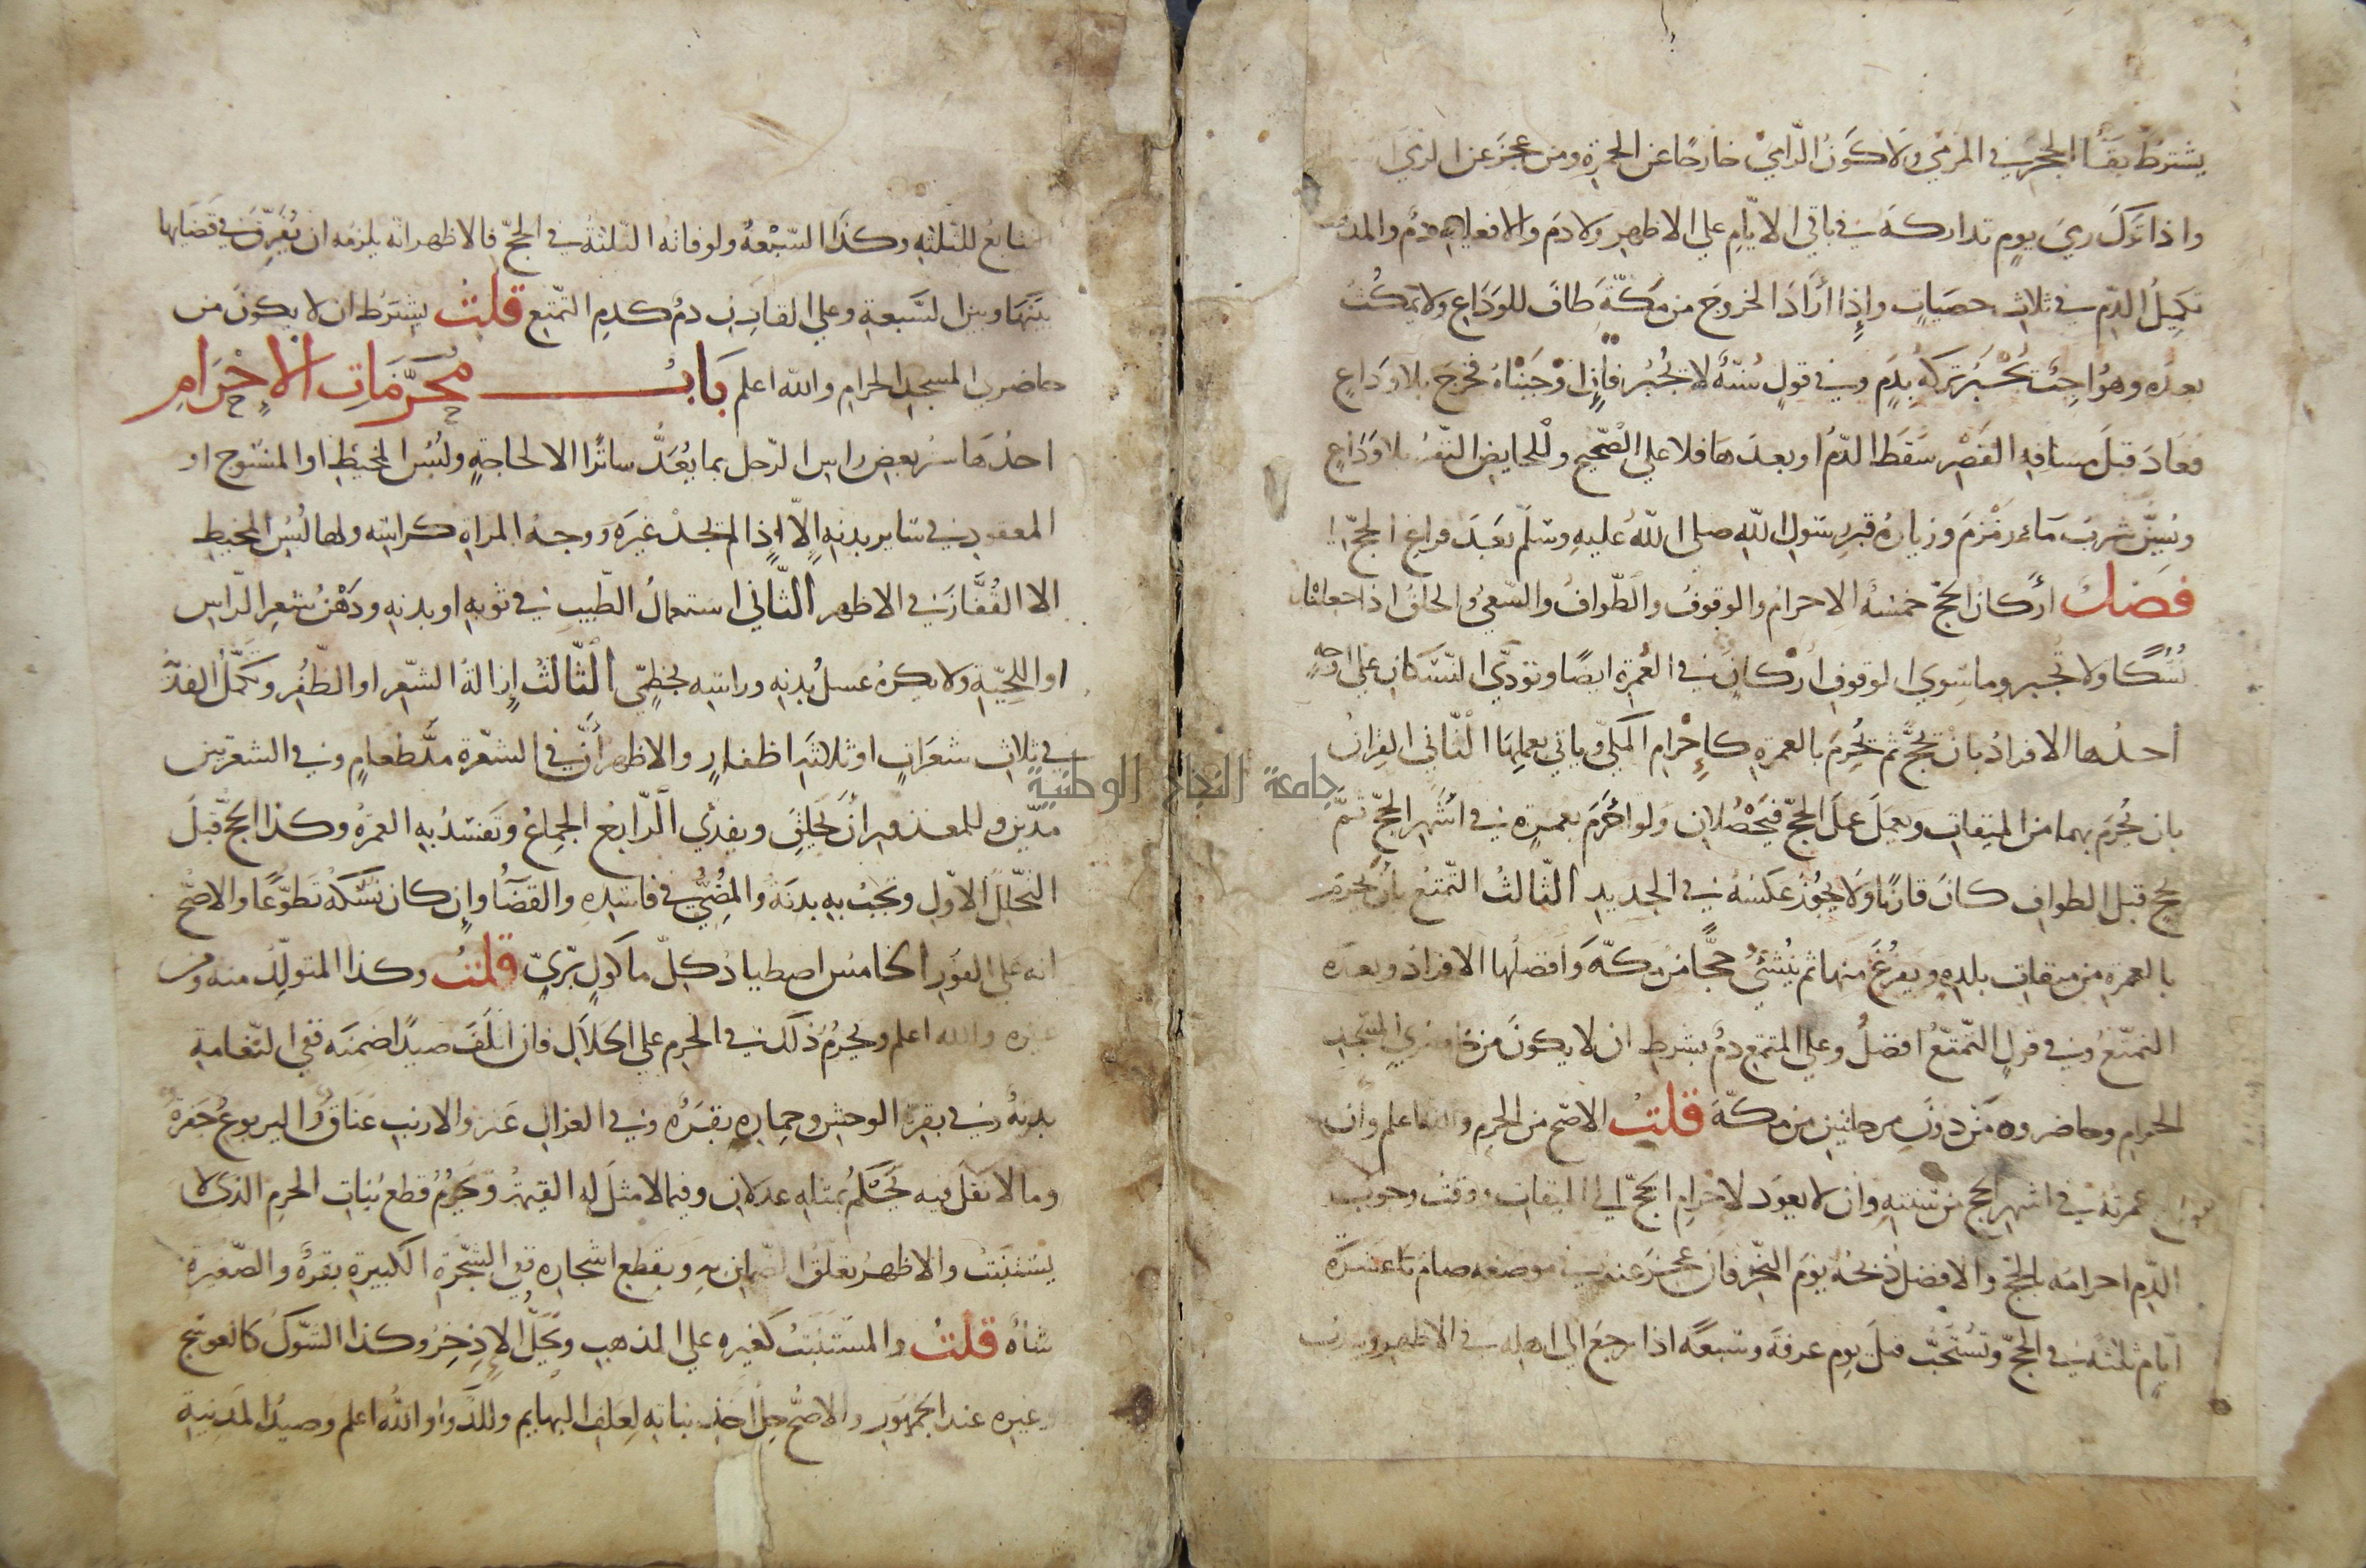 يشترط بقا الحجر في المرمي ولا كون الرامي خارجا عن الجمرة ومن عجز عن الرمي
واذا ترك رمي يوم تداركه في باقي الايام علي الاظهر ولا دم والا فعليه دم والمذهب
تكميل الدم في ثلاث حصيات واذا أراد الخروج من مكة طاف للوداع ولا يمكث
بعده وهو واجب يجبر تركه بدم وفي قول سنة لا تجبر فإن اوجبناه فخرج بلا وداع
فعاد قبل مسافة القصر سقط الدم او بعدها فلا علي الصحيح وللحايض النفر بلا وداع
ويسن شرب ماء زمزم وزيارة قبر رسول الله صلي الله عليه وسلم بعد فراغ الحج
فصل أركان الحج خمسة الاحرام والوقوف والطواف والسعي والحلق اذا جعلناه
نسكا ولا تجبر وما سوي الوقوف أركان في العمرة ايضا وتودي النسكان علي اوجه
أحدها الافراد بان يحج ثم يحرم بالعمرة كإحرام المكي وياتي بعملها الثاني القران
بان يحرم بهما من الميقات ويعمل عمل الحج فيحصلان ولو احرم بعمرة في اشهر الحج ثم
بحج قبل الطواف كان قارنا ولا يجوز عكسه في الجديد الثالث التمتع بان يحرم
بالعمرة من ميقات بلده ويفرغ منها ثم ينشئ حجا من مكة وافضلها الافراد وبعده
التمتع وفي قول التمتع افضل وعلي المتمتع دم بشرط ان لا يكون من حاضري المسجد
الحرام وحاضروه من دون مرحلتين من مكة قلت الاصح من الحرم والله اعلم وان
عمرته في اشهر الحج من سنته وان لا يعود لاحرام الحج الي الميقات ووقت وجوب
الدم احرامه بالحج والافضل ذبحه يوم النحر فان عجز عنه في موضعه صام عشرة
ايام ثلثة في الحج وتستحب قبل يوم عرفة وسبعة اذا رجع الي اهله في الاظهر ويندب
تتابع الثلثة وكذا السبعة ولو فاتته الثلثة في الحج فالاظهر انه يلزمه ان يفرق في قضايها
بينها وبين السبعة وعلي القارن دم كدم التمتع قلت بشرط ان لا يكون من
حاضري المسجد الحرام والله اعلم باب محرمات الاحرام
احدها ستر بعض راس الرجل بما يعد ساترا الا لحاجة ولبس المخيط او المنسوج او
المعقود في ساير بدنه إلا إذا لم يجد غيره ووجه المراة كراسه ولها لبس المخيط
الا القفاز في الاظهر الثاني استعمال الطيب في ثوبه او بدنه ودهن شعر الراس
او اللحية ولا يكره غسل بدنه وراسه بخطمي الثالث إزالة الشعر او الظفر وتكمل الفدية
في ثلاث شعرات او ثلاثة اظفار والاظهر أن في الشعرة مد طعام وفي الشعرتين
مدين وللمعذور أن يحلق ويفدي الرابع الجماع وتفسد به العمرة وكذا الحج قبل
التحلل الاول وتجب به بدنة والمضي في فاسده والقضاء وان كان نسكه تطوعا والاصح
انه علي الفور الخامس اصطياد كل ماكول بري قلت وكذا المتولد منه ومن
غيره والله اعلم ويحرم ذلك في الحرم علي الحلال فان اتلف صيدا ضمنه ففي النعامة
بدنة وفي بقرة الوحش وحماره بقرة وفي الغزال عنز والارنب عناق واليربوع جفرة
وما لا نقل فيه يحكم بمثله عدلان وفيما لا مثل له القيمة ويحرم قطع نبات الحرم الذي لا
يستنبت والاظهر تعلق الضمان به وبقطع اشجاره ففي الشجرة الكبيرة بقرة والصغيرة
شاة قلت والمستنبت كغيره علي المذهب ويحل الإذخر وكذا الشوك كالعوسج
وغيره عند الجمهور والاصح حل اخذ نباته لعلف البهايم وللدوا والله اعلم وصيد المدينة
جامعة النجاح الوطنية